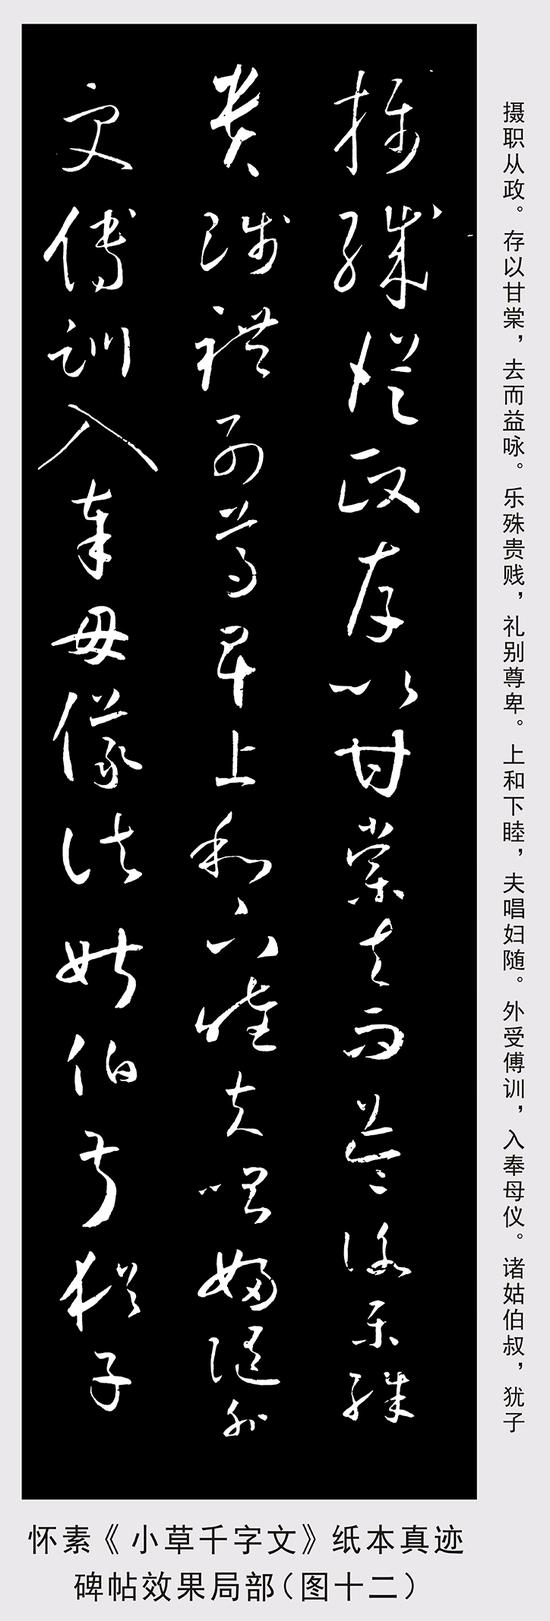 摄职从政。存以甘棠，去而益咏。乐殊贵贱，礼别尊卑。上和下睦，夫唱妇随。外受傅训，入奉母仪。诸姑伯叔，犹子
攝職從政存以甘棠去而益詠樂殊
貴賤禮別尊卑上和下睦夫唱婦隨外
受傅訓入奉母儀諸姑伯叔猶子
怀素《小草千字文》纸本真迹
碑帖效果局部（图十二）